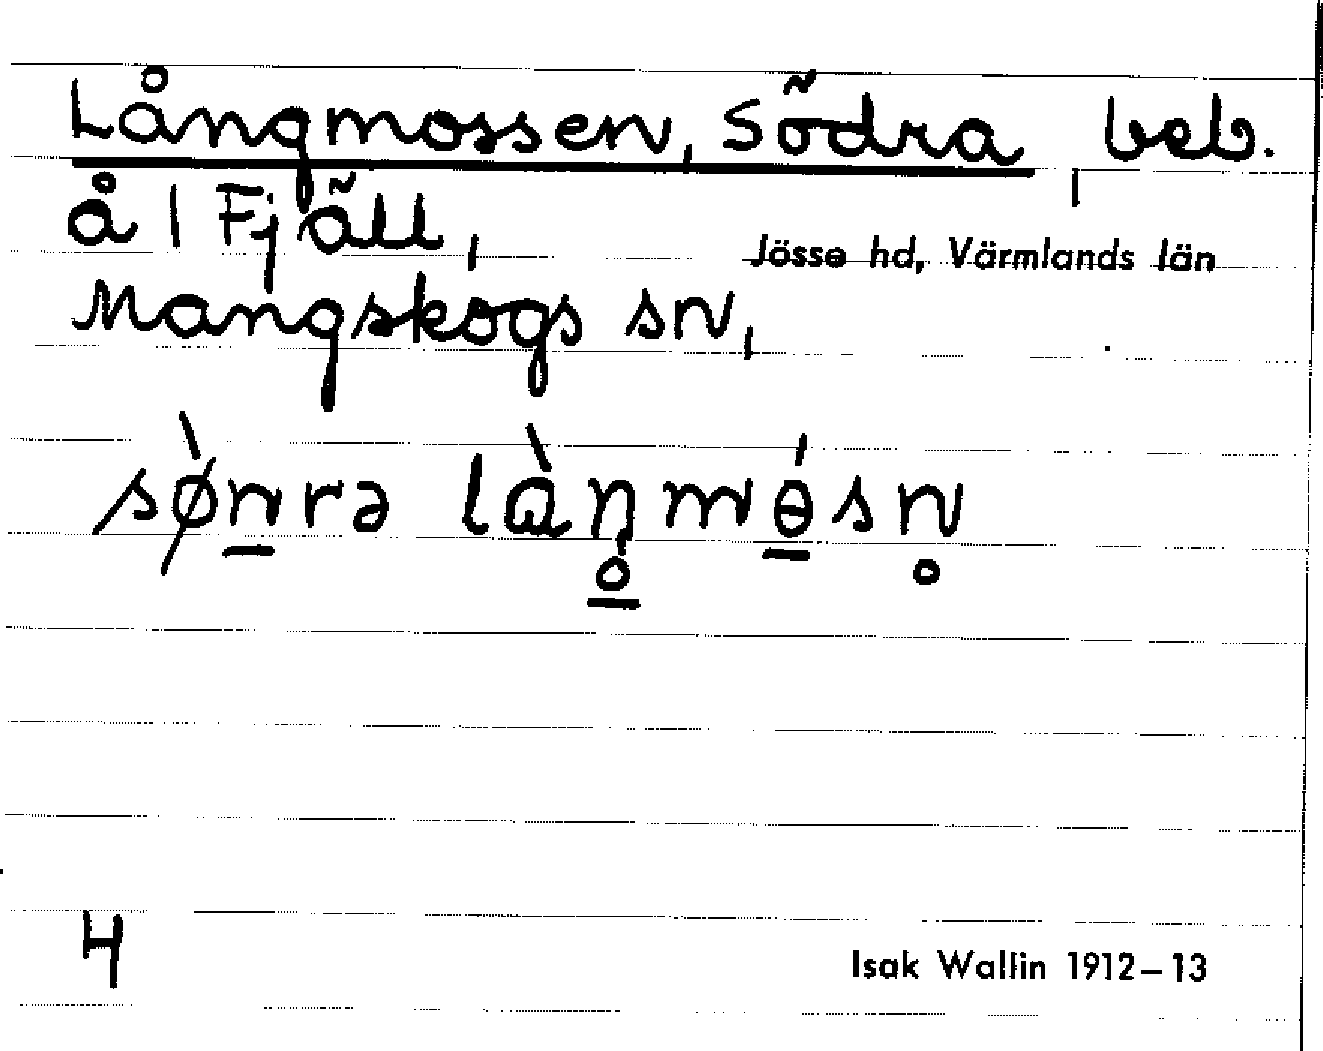 Långmossen, Södra, beb.
å 1 Fjäll,
Jösse hd, Värmlands län
Mangskogs sn,
sø̀nrə làŋmɵ́sn̥
4
Isak Wallin 1912–13